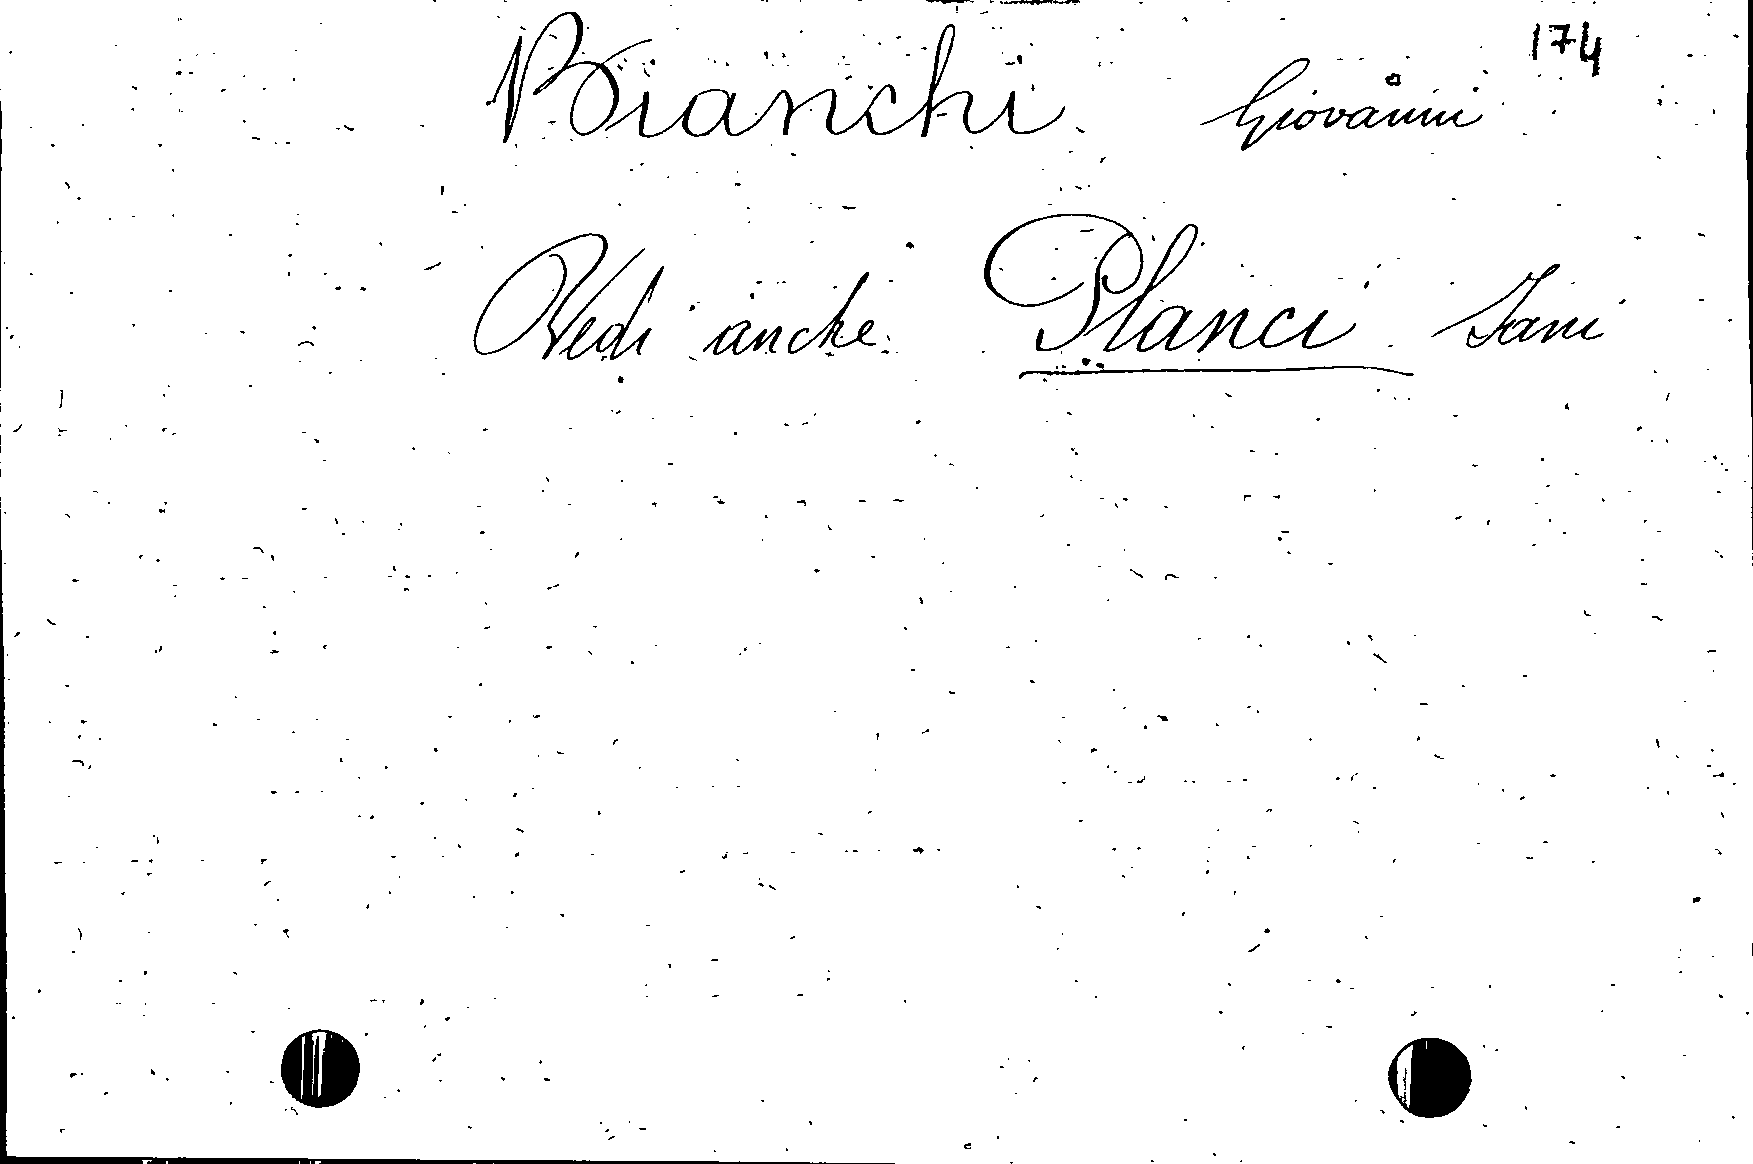 174
Bianchi Giovanni
Vedi anche Planci Jani